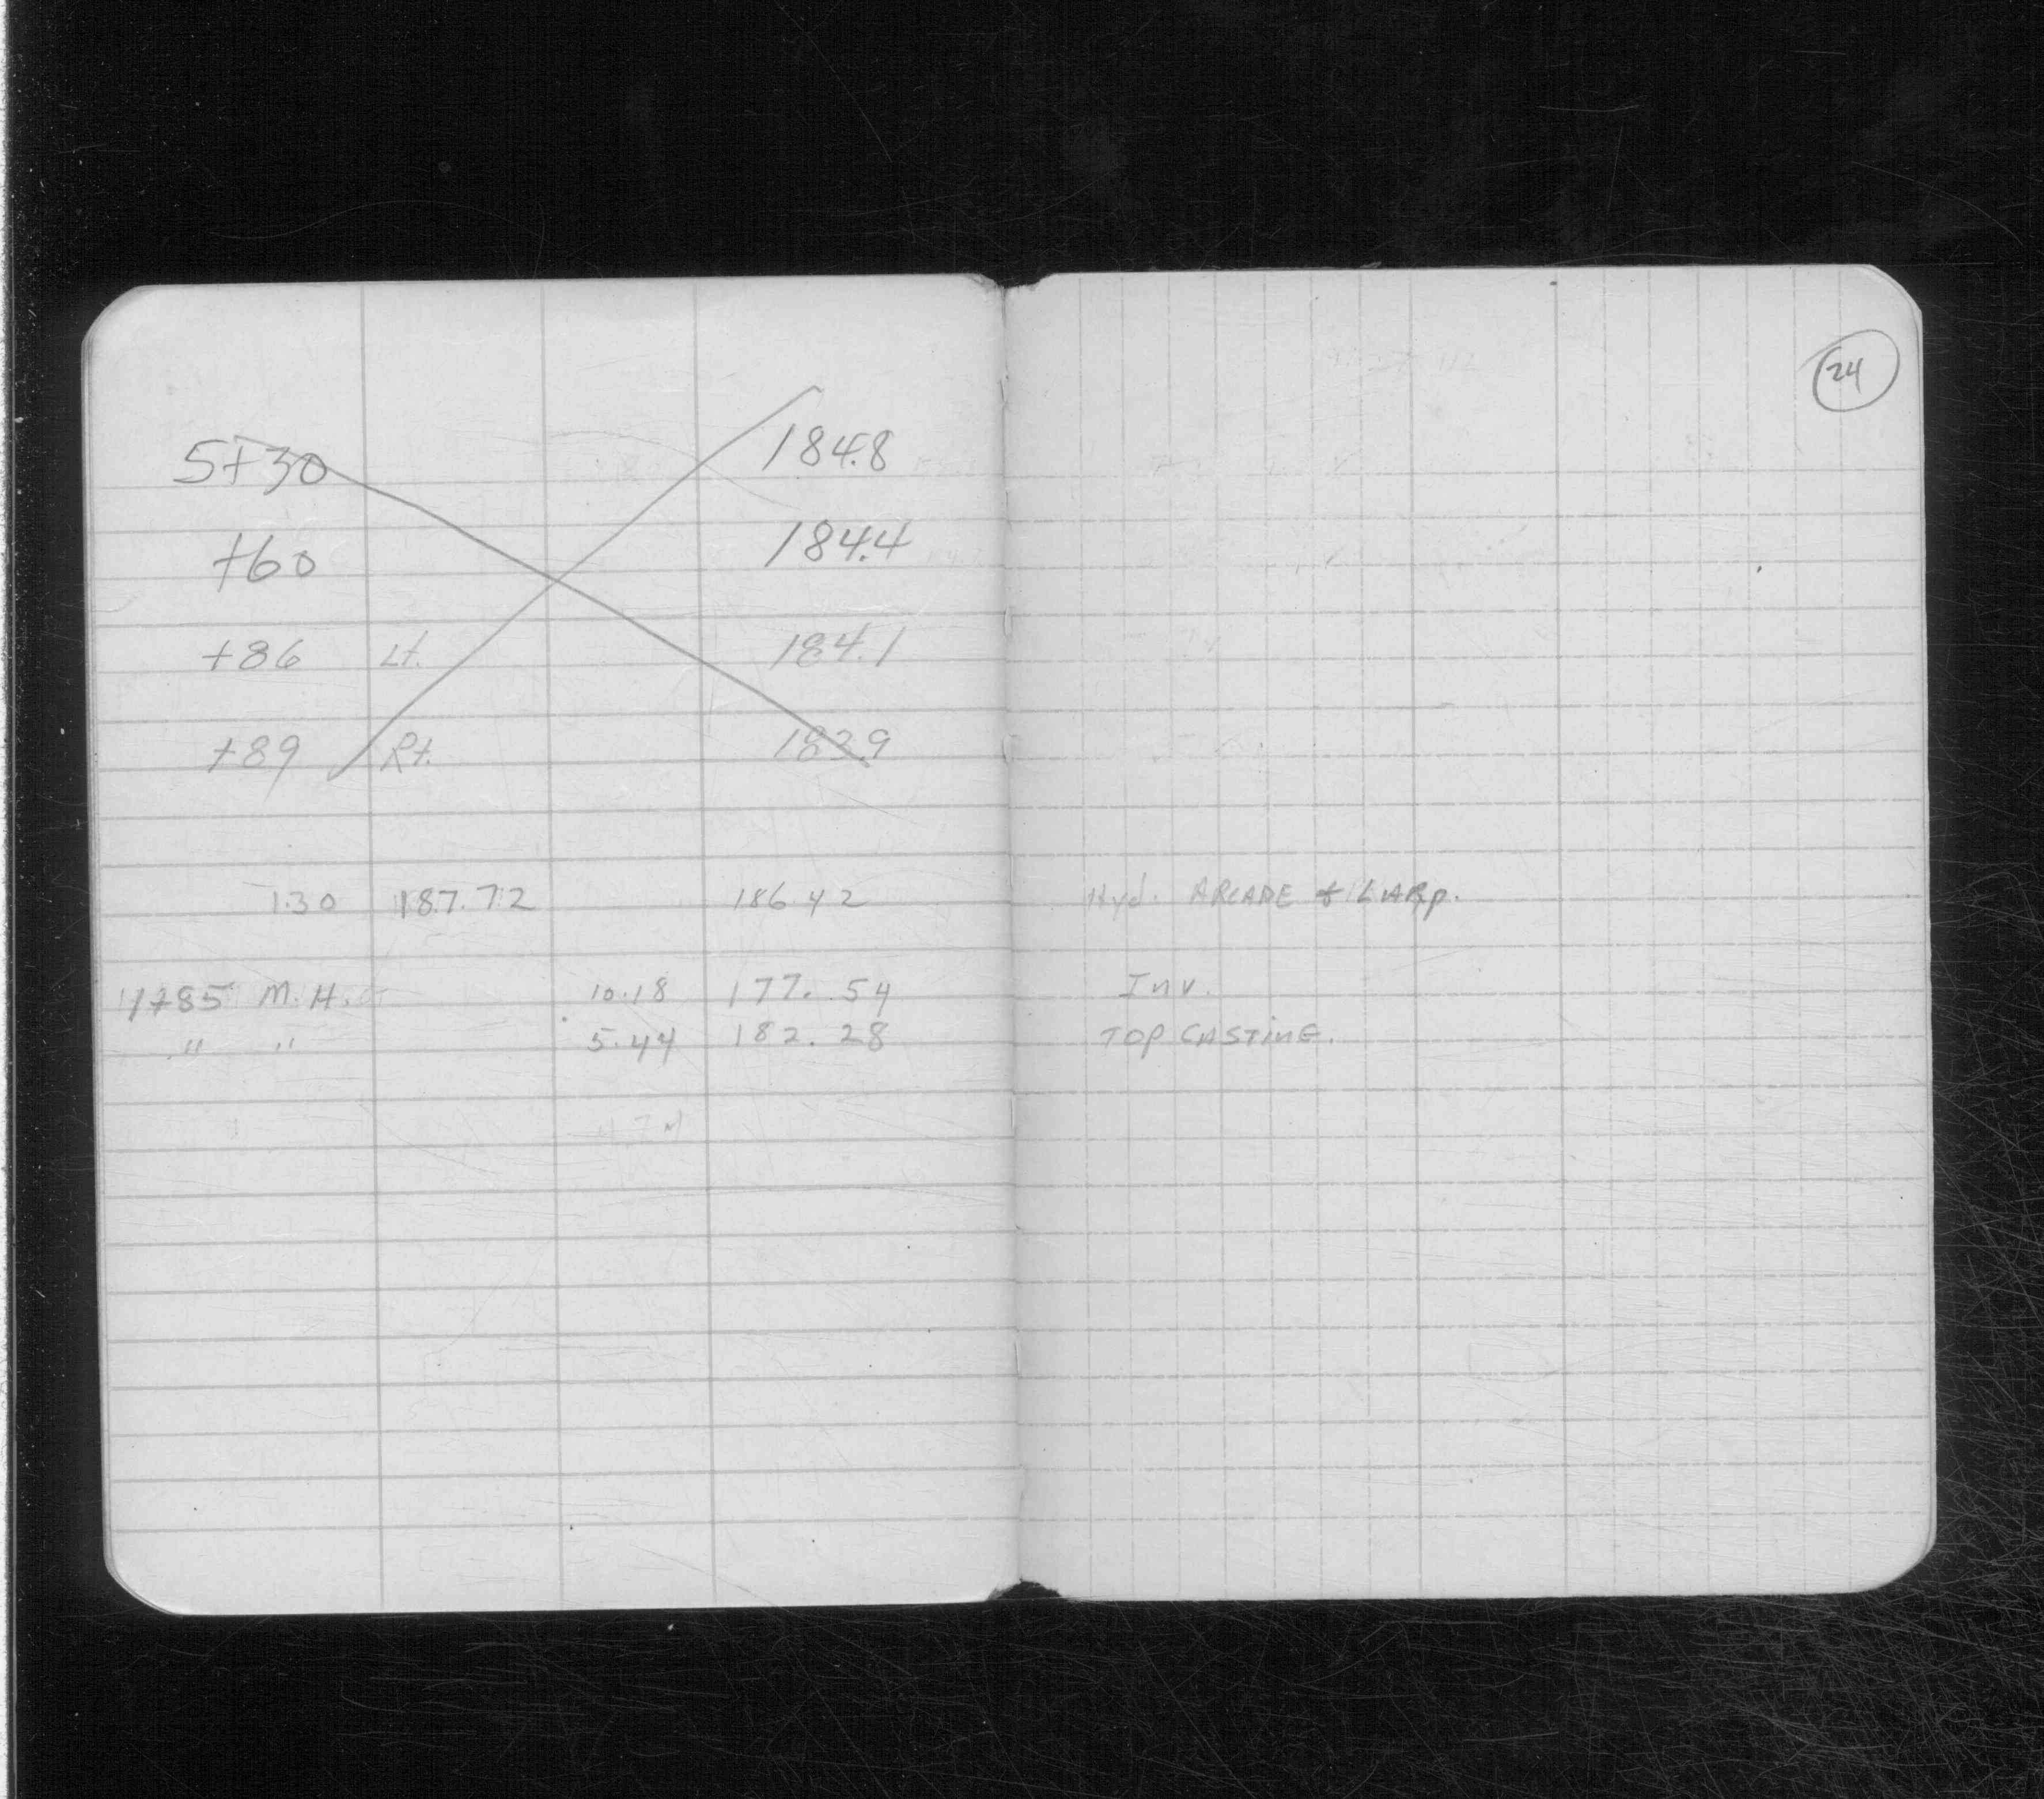 24
5+30 184.8
+60 184.4
+86 Lt. 184.1
+89 Rt. 183.9
1.30 187.72 186.42 Hyd. ARCADE & LARP.
1+85 M.H. 10.18 177.54 Inv.
" " 5.44 182.28 TOP CASTING.